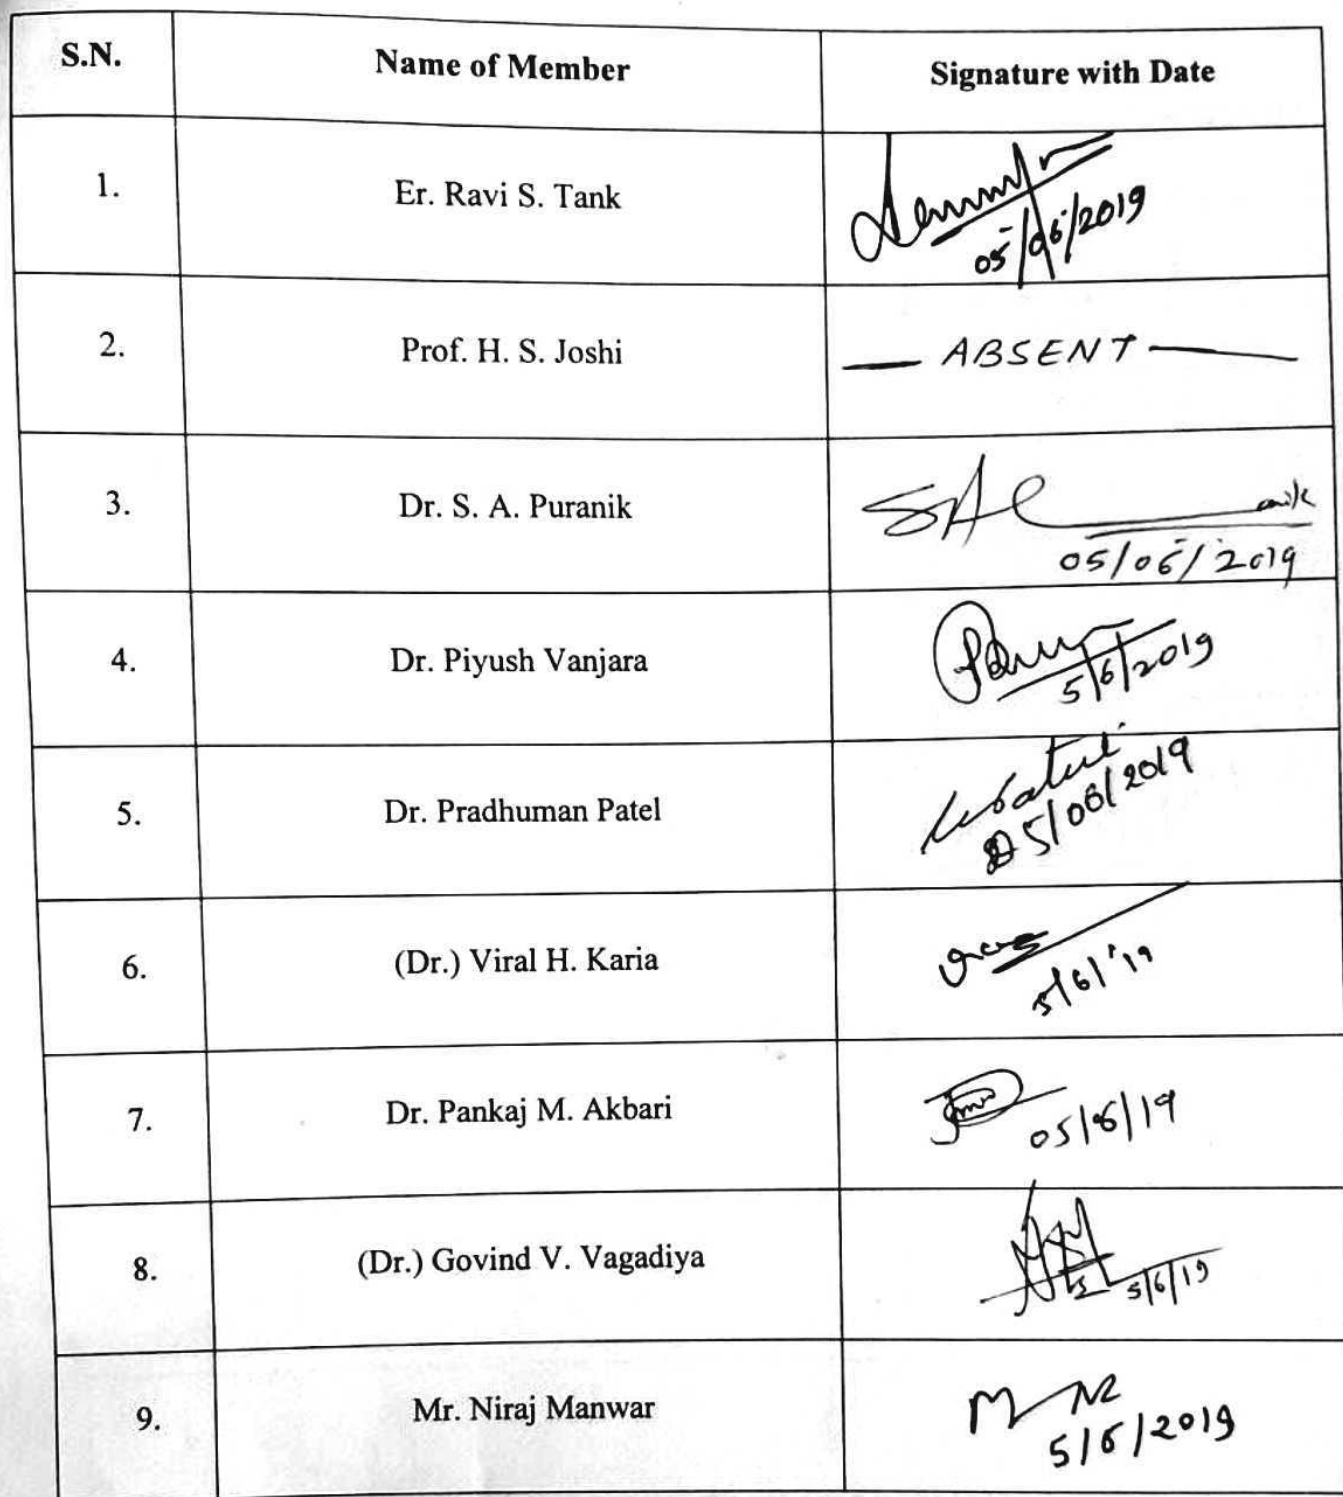 S.N. Name of Member Signature with Date
1. Er. Ravi S. Tank
05/06/2019
2. Prof. H. S. Joshi — ABSENT —
3. Dr. S. A. Puranik
05/06/2019
4. Dr. Piyush Vanjara
5/6/2019
5. Dr. Pradhuman Patel
05/06/2019
6. (Dr.) Viral H. Karia
5/6/'19
7. Dr. Pankaj M. Akbari
05/6/19
8. (Dr.) Govind V. Vagadiya
5/6/19
9. Mr. Niraj Manwar
5/6/2019